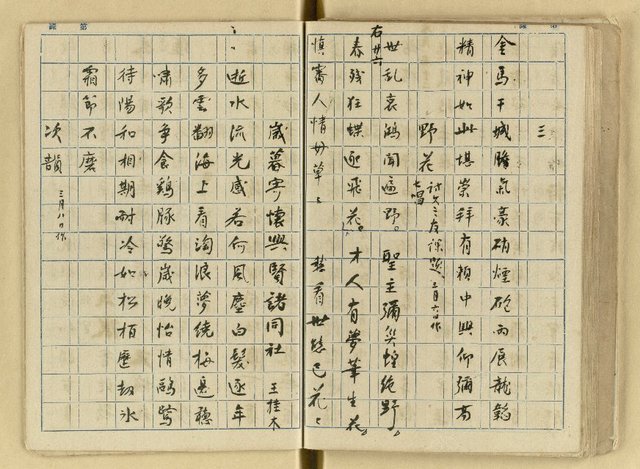 三
金馬干城膽氣豪硝煙砲雨展龍韜
精神如此堪崇拜有賴中興仰彌高
野花 詩文之友課題、三月六日作
七唱
右廿六
世亂哀鴻聞遍野。聖主彌災蝗絕野。
春殘狂蝶逐飛花。才人有夢筆生花。
慎審人情毋草々 熟看世態已花々
歲暮寄懷興賢諸同社 王桂木
逝水流光感若何風塵白髮逐年
多雲翻海上看淘浪夢繞梅邊穩
嘯歌爭食鷄豚驚歲晚怡情鷗鷺
待陽和相期耐冷如松柏歷劫冰
霜節不磨
次韻 三月八日作
第